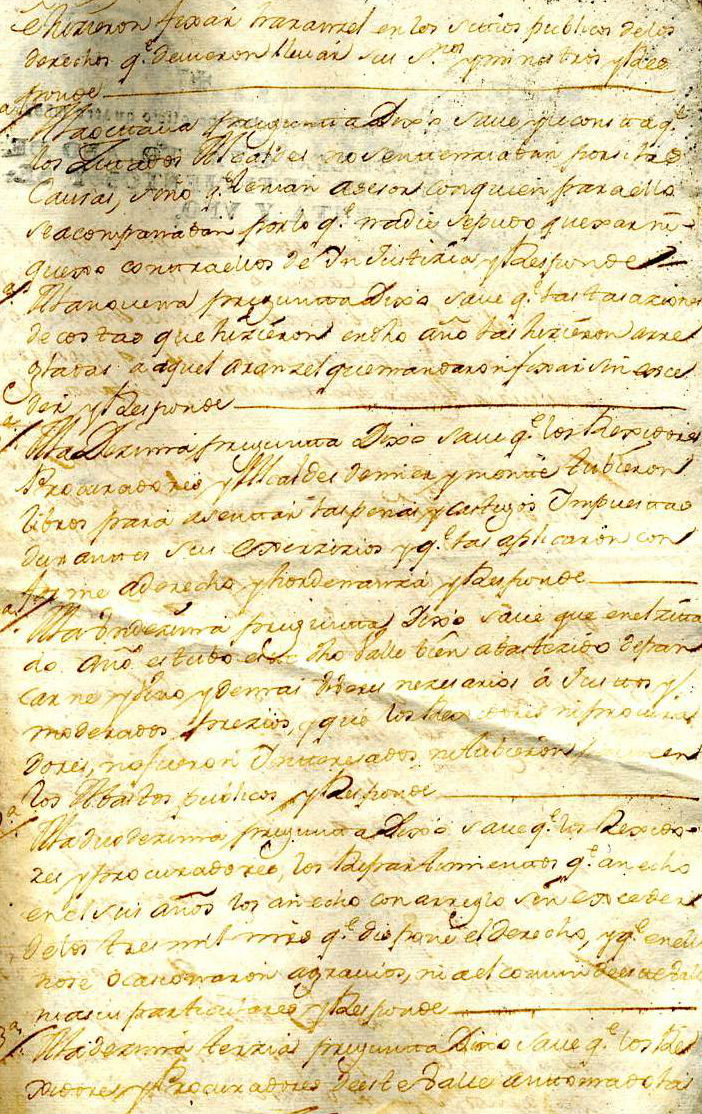 hizieron fixar haranzel en los sitios publicos de los
derechos q.e devieron llevar sus s.nos y ministros y Res
ponde
A la octava pregunta Dixo save y le consta q.e
los Alcaldes no sentenciaban por si las
Causas, sino q.e tenian asesor con quien para ello
se acompañaban por lo q.e nadie se pudo quexar ni
quexo contra ellos de Injusticia y Responde
A la novena pregunta Dixo save q.e las tasaziones
de costas que hizieron en dho año las hizieron arre
gladas a aquel aranzel que mandaron fixar sin exce
der y Responde
A la Dezima pregunta Dixo save q.e los Rexidores
Procuradores y Alcaldes de mier y monte tubieron
libros para asentar las penas y castigos Impuestas
durante sus exerzizios y q.e las aplicaron con
forme a derecho y hordenanza y Responde
A la Undezima pregunta Dixo save que en el zita
do año estubo dho Valle bien abastezido de pan
carne y vino y demas viberes nezesarios a Justos y
moderados prezios, y que los Rexidores ni procura
dores, no fueron Interesados ni tubieron en
los Abastos publicos y Responde
A la duodezima pregunta Dixo save q.e los Rexido
res y procuradores, los Repartimientos q.e an echo
en sus años los an echo con arreglo sin exceder
de los tres mil mrs q.e dispone el derecho, y q.e en ellos
no se ocasionaron agravios, ni a el comun de este Valle
ni a sus particulares y Responde
3.a A la dezima terzia pregunta Dixo save q.e los Re
xidores y Procuradores de este Valle an tomado las